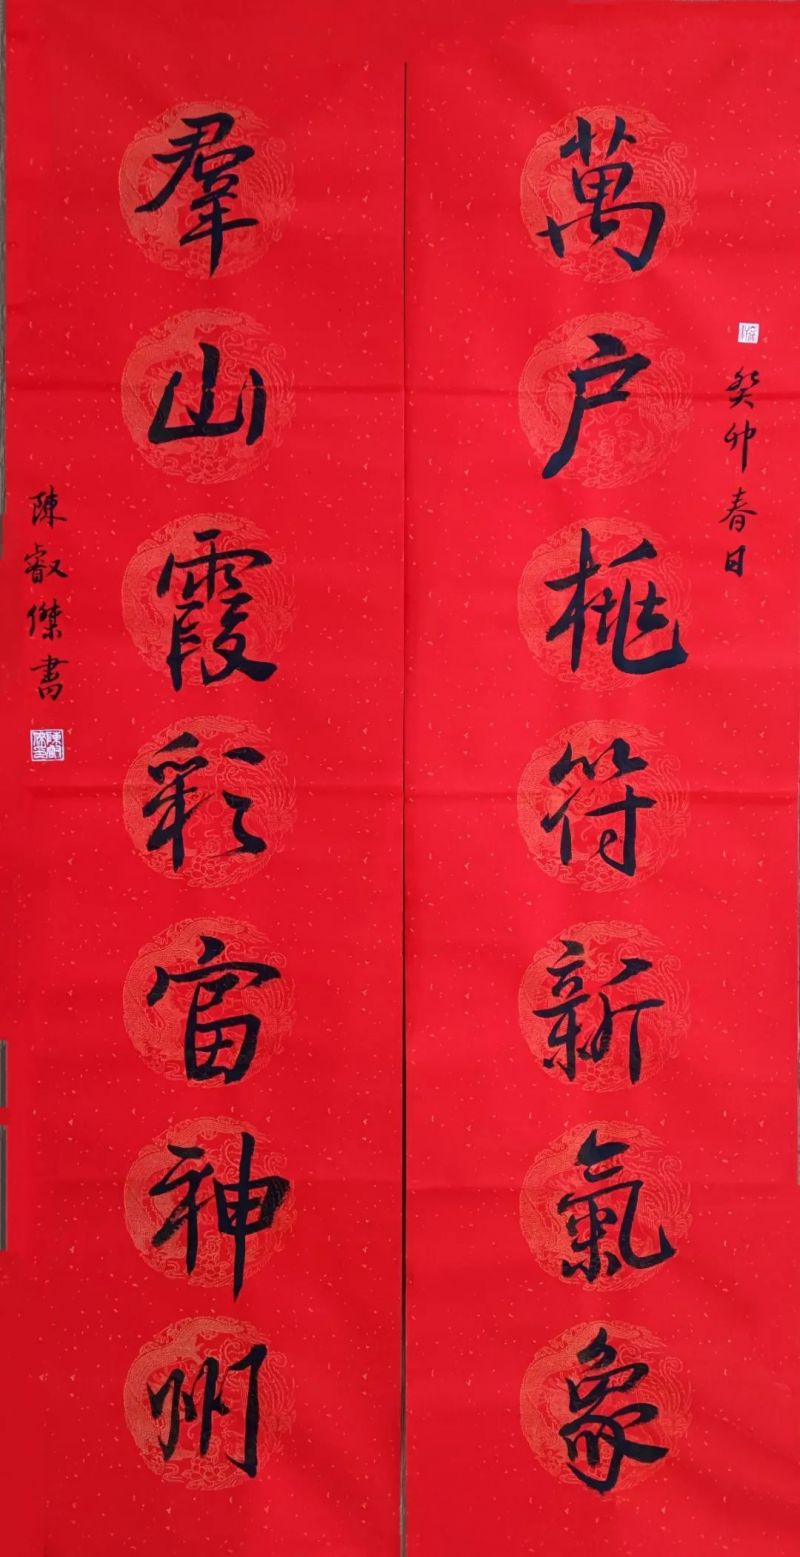 癸卯春日
萬户桃符新氣象
羣山霞彩富神州
陳叡傑書